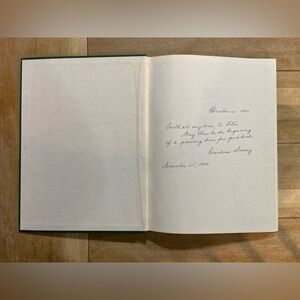 Christmas 1980
With all my love, to Robin
May this be the beginning
of a growing love for good books.
Grandma
December 25, 1980